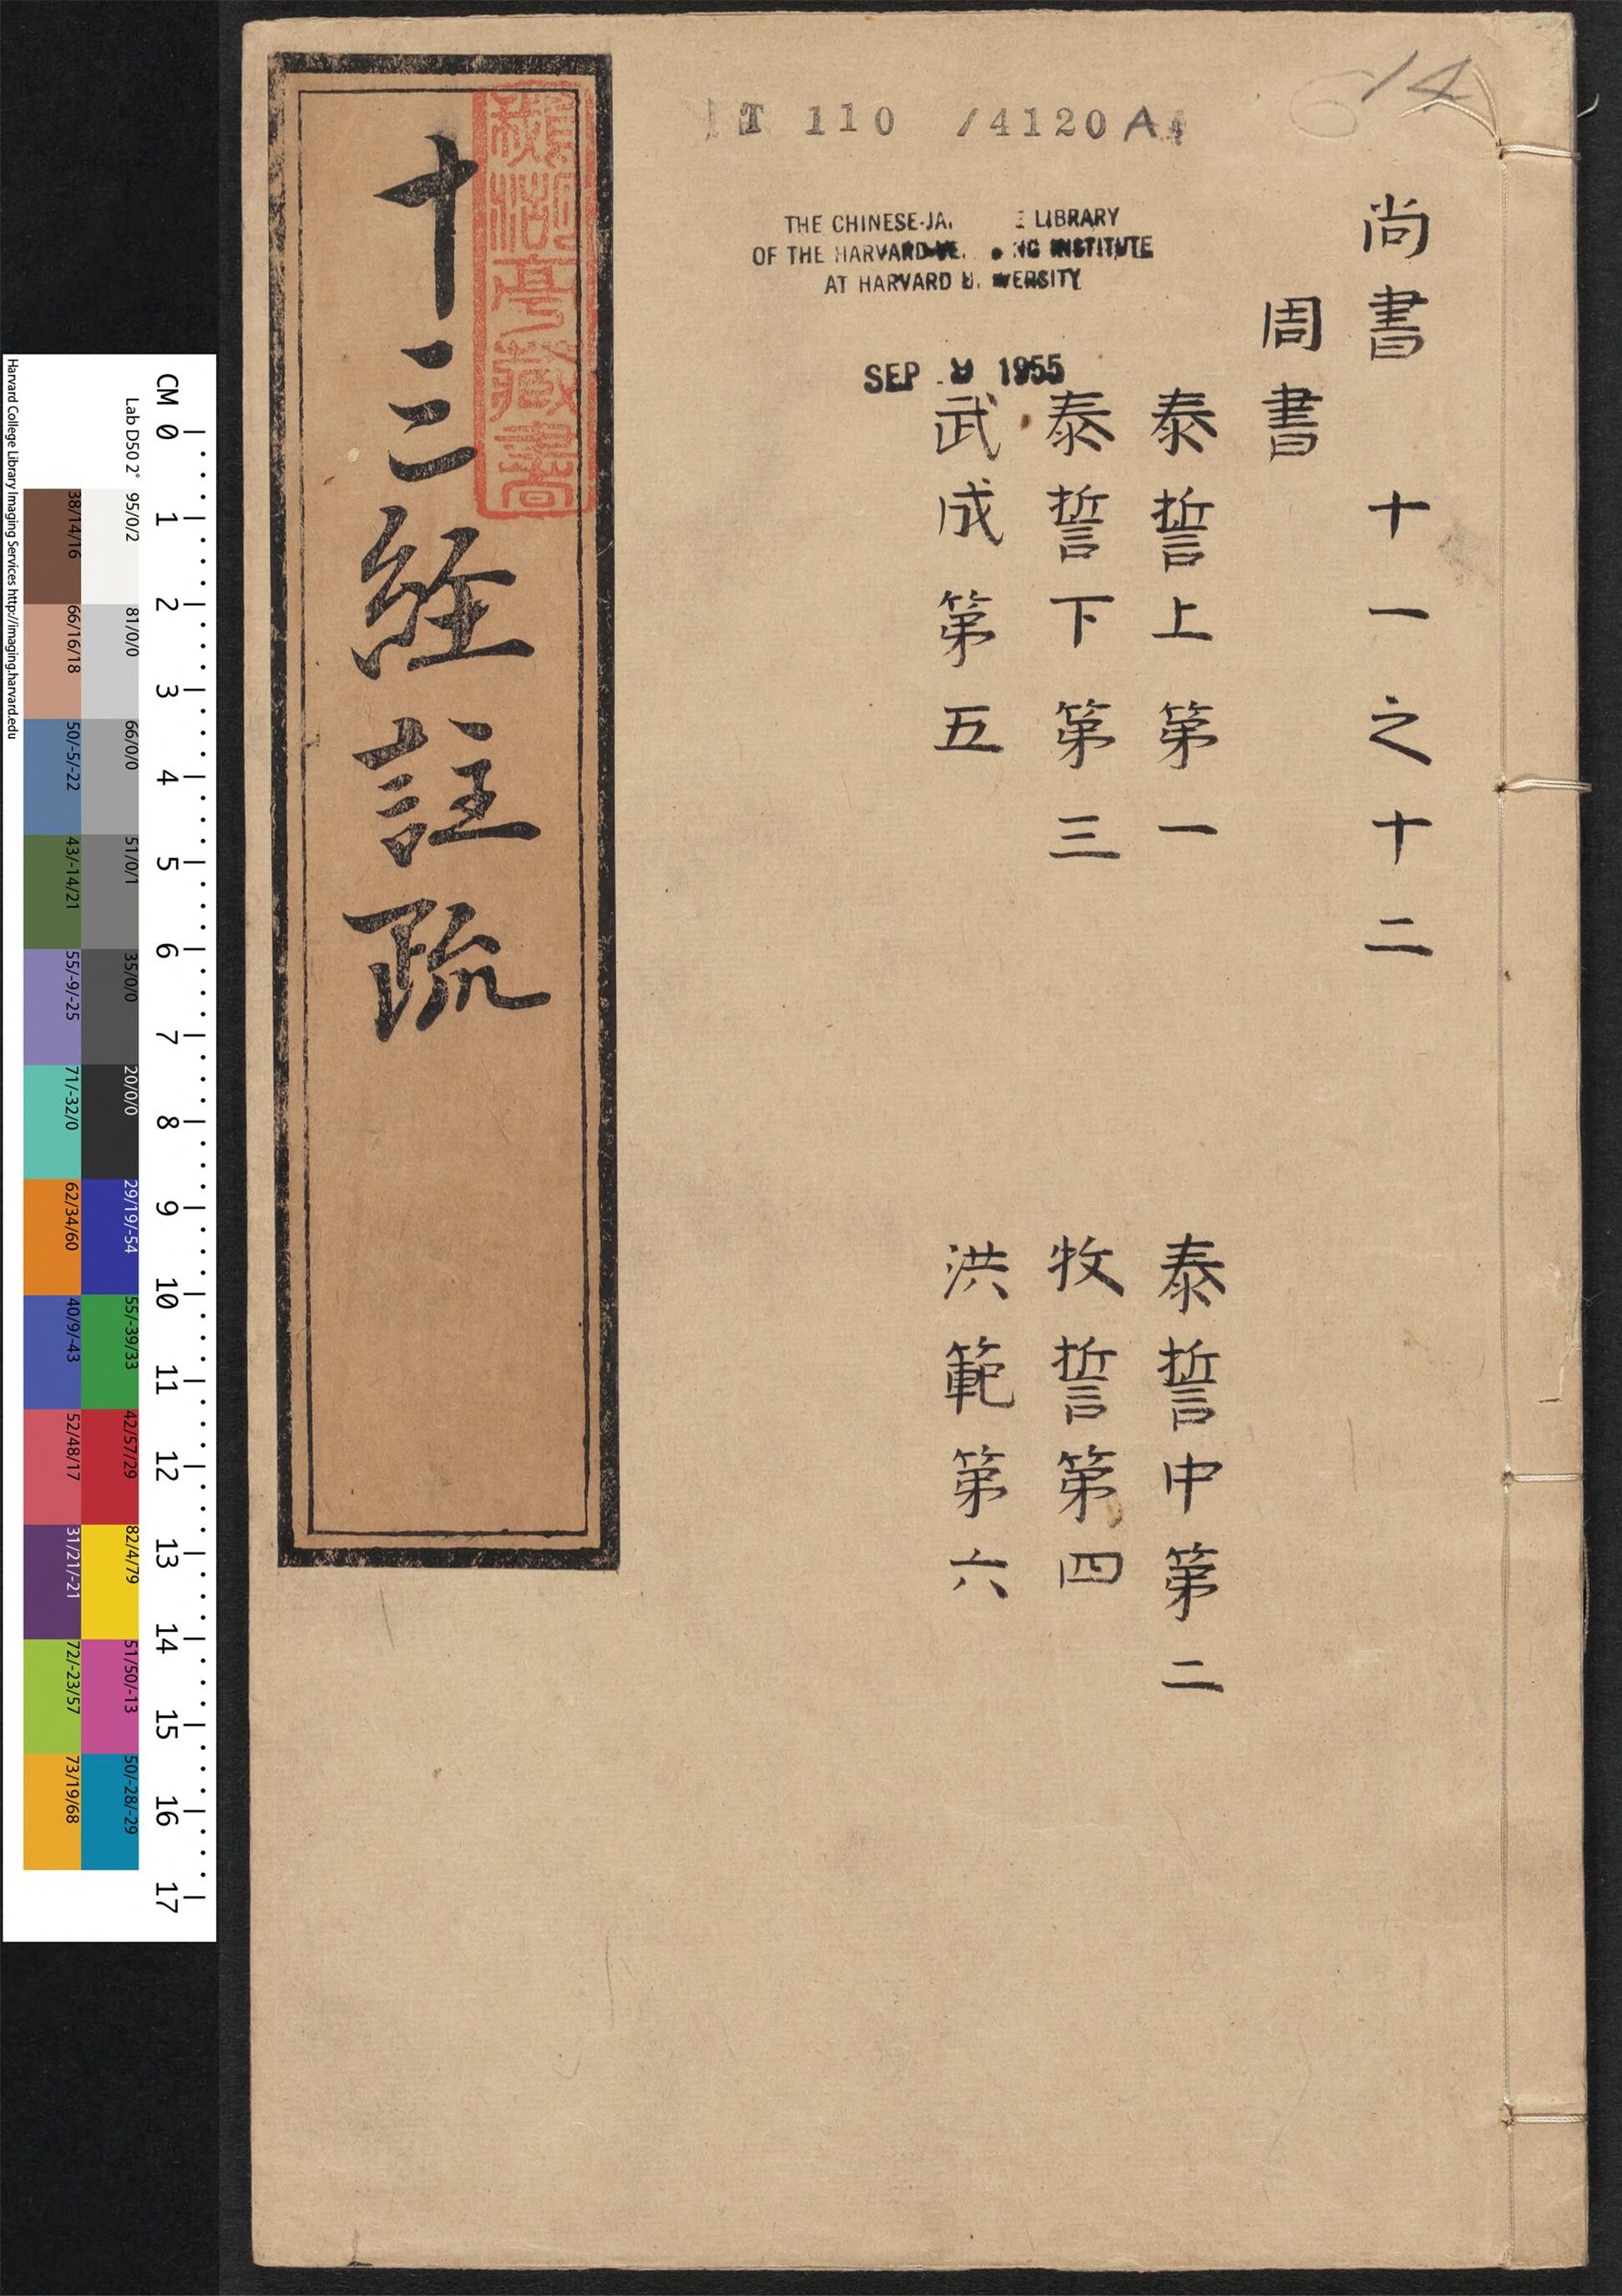 尚書 十一之十二
周書
泰誓上第一 泰誓中第二
泰誓下第三 牧誓第四
武成第五 洪範第六
十三經註疏
亭藏書
T 110 /4120 A
14
THE CHINESE-JA E LIBRARY
OF THE HARVARD- NG INSTITUTE
AT HARVARD U ERSITY
SEP 1955
Harvard College Library Imaging Services http://imaging.harvard.edu
Lab D50 2°
CM 0 1 2 3 4 5 6 7 8 9 10 11 12 13 14 15 16 17
95/0/2 81/0/0 66/0/0 51/0/1 35/0/0 20/0/0 29/19/-54 55/-39/33 42/57/29 82/4/79 51/50/-13 50/-28/-29
38/14/16 66/16/18 50/-5/-22 43/-14/21 55/-9/-25 71/-32/0 62/34/60 40/9/-43 52/48/17 31/21/-21 72/-23/57 73/19/68